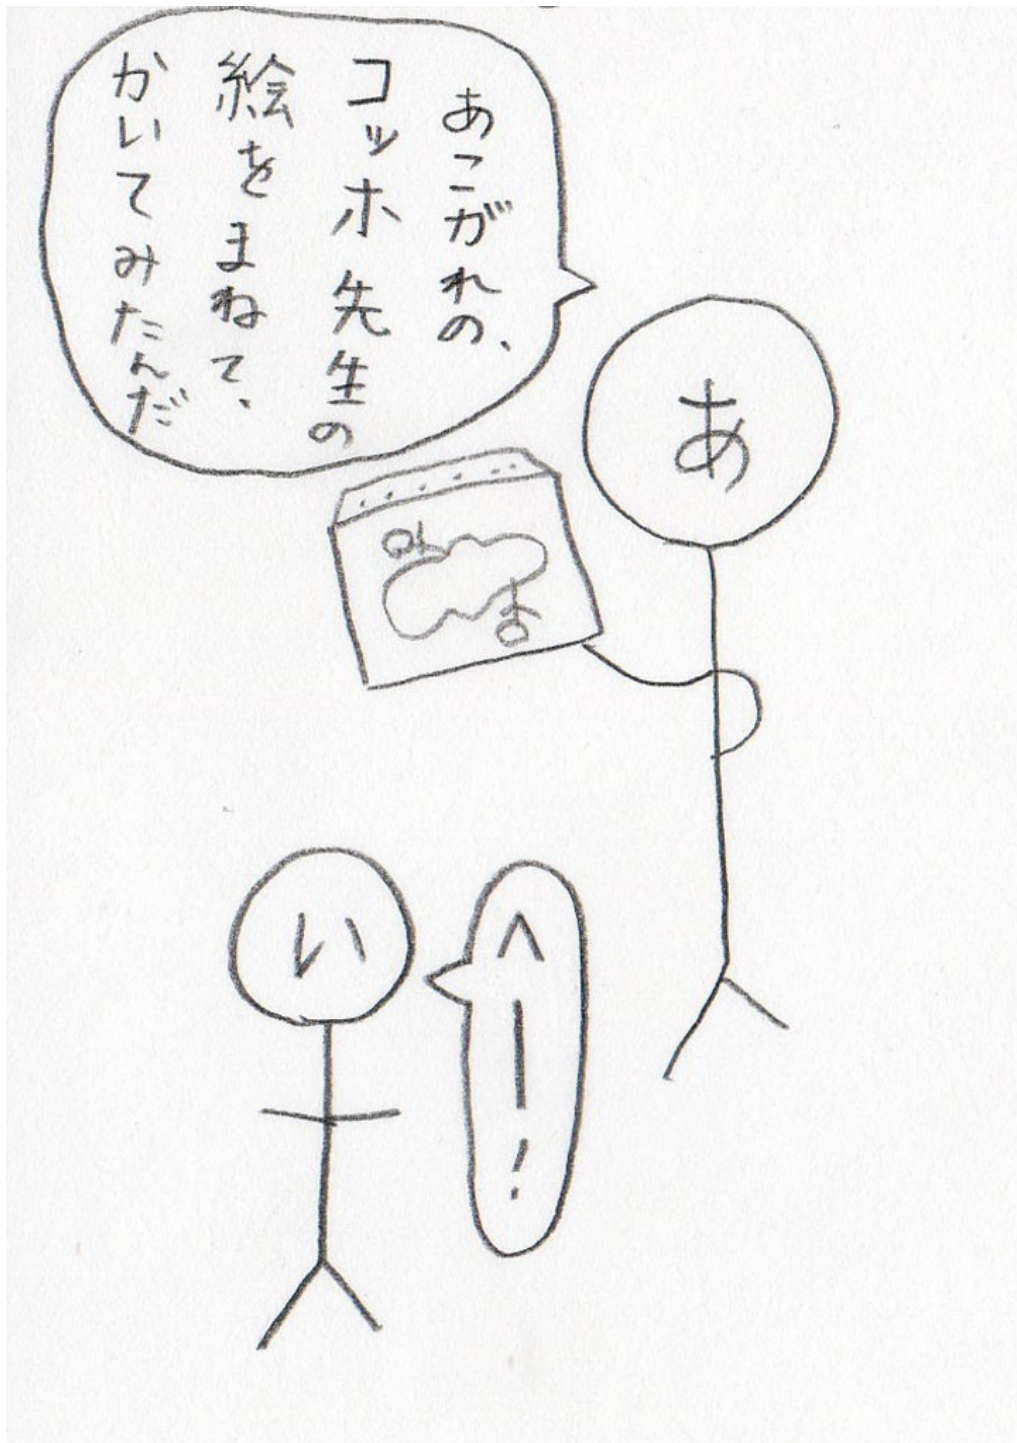 あこがれの、
コッホ先生の
絵をまねて、
かいてみたんだ
あ
へー!
い